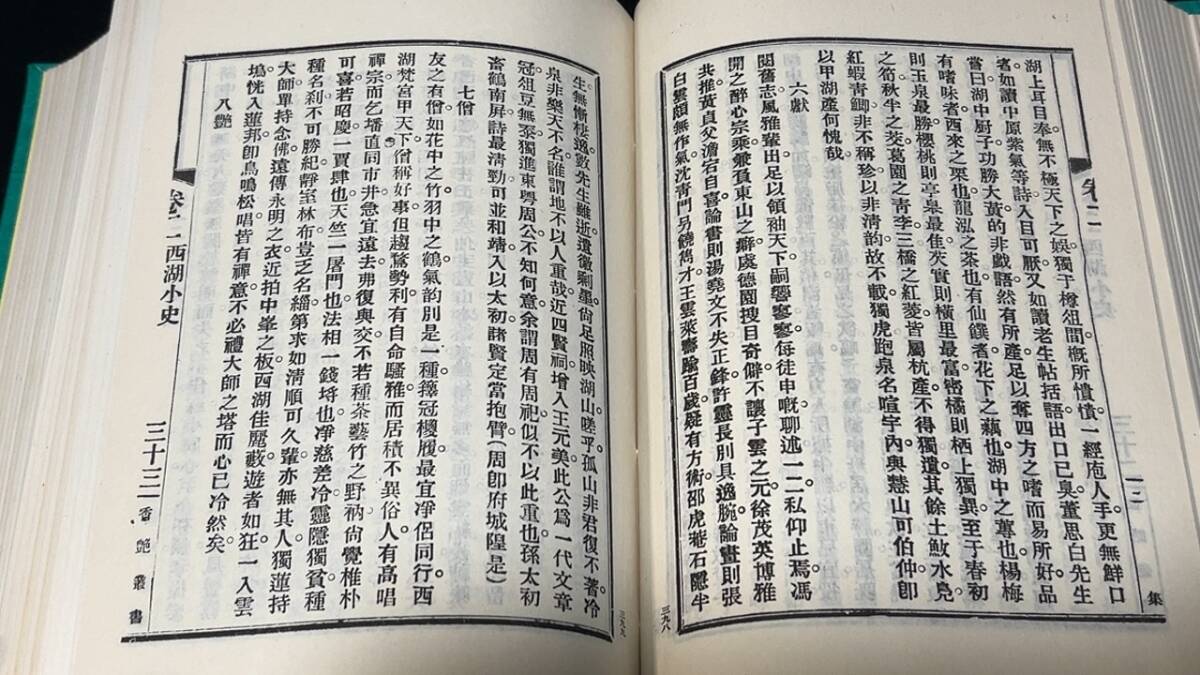 湖上耳目奉無不極天下之娛獨于樽俎間槪所憒憒。一經庖人手更無鮮口
者。如讀中原紫氣等詩。入目可厭。又如讀老生帖括語。出口已臭。董思白先生
嘗曰。湖中厨子。功勝大黃的非戲語。然有所產足以奪四方之嗜而易所好。品
有嗜味者。西來之栗也。龍泓之茶也。有仙饌者。花下之藕也。湖中之蓴也。楊梅
則玉泉最勝。櫻桃則亭皋最佳。芡實則橫里最富。蜜橘則栖上獨異。至于春初
之筍。秋半之茭。葛園之靑李。三橋之紅菱。皆屬杭產。不得獨遺。其餘土鮁水鳧
紅蝦靑鯽。非不稱珍。以非淸韵。故不載。獨虎跑泉名喧宇內。與慧山可伯仲。卽
以甲湖產何愧哉。
六獻
閱舊志風雅輩出。足以領袖天下。嗣響寥寥。每徒申嘅。聊述一二。私仰止焉。馮
開之醉心宗乘。兼負東山之癖。虞德園搜目奇僻。不讓子雲之元。徐茂英博雅
共推。黃貞父澹宕自喜。論書則湯堯文不失正鋒。許靈長別具逸腕。論畫則張
白雲頗無作氣。沈靑門另饒雋才。王雲萊壽踰百歲。疑有方術。邵虎菴石隱半
集
三九八
生無慚棲逸。數先生雖逝。遺徽剩墨。尙足照映湖山。嗟乎。孤山非君復不著。冷
泉非樂天不名。誰謂地不以人重哉。近四賢祠增入王元美。此公爲一代文章
冠。俎豆無忝。獨進東粵周公。不知何意。余謂周有周祀。似不以此重也。孫太初
畜鶴南屏。詩最淸勁。可並和靖。入以太初。諸賢定當抱臂。(周卽府城隍是)
七僧
友之有僧。如花中之竹。羽中之鶴。氣韵別是一種。籜冠椶履。最宜凈侶同行。西
湖梵宮甲天下。僧稱好事。但趨鶩勢利。有自命騷雅而居積不異俗人。有高唱
禪宗而乞墦直同市井。急宜遠去。弗復與交。不若種茶藝竹之野衲。尙覺椎朴
可喜。若昭慶一賈肆也。天竺一屠門也。法相一錢埓也。凈慈差冷。靈隱獨貧。種
種名刹。不可勝紀。靜室林布。豈乏名緇。第求如淸順可久輩亦無其人。獨蓮持
大師單持念佛。遠傳永明之衣。近拍中峯之板。西湖佳麗藪。遊者如狂。一入雲
塢。恍入蓮邦。卽鳥鳴松唱。皆有禪意。不必禮大師之塔而心已冷然矣。
八艷
卷二 西湖小史
三十三
香艷叢書
三九九